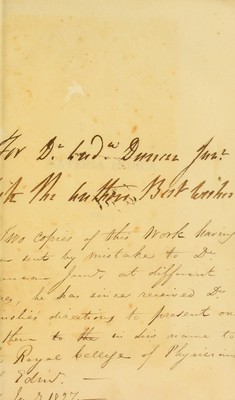 For Dr. Andw Duncan Junr.
with the Authors Best wishes
Two copies of this Work having
sent by mistake to Dr
Duncan Junr, at different
he has since received Dr
directions to present one
them to the in his name to
Royal College of Physicians
Edinr. —
1827. —